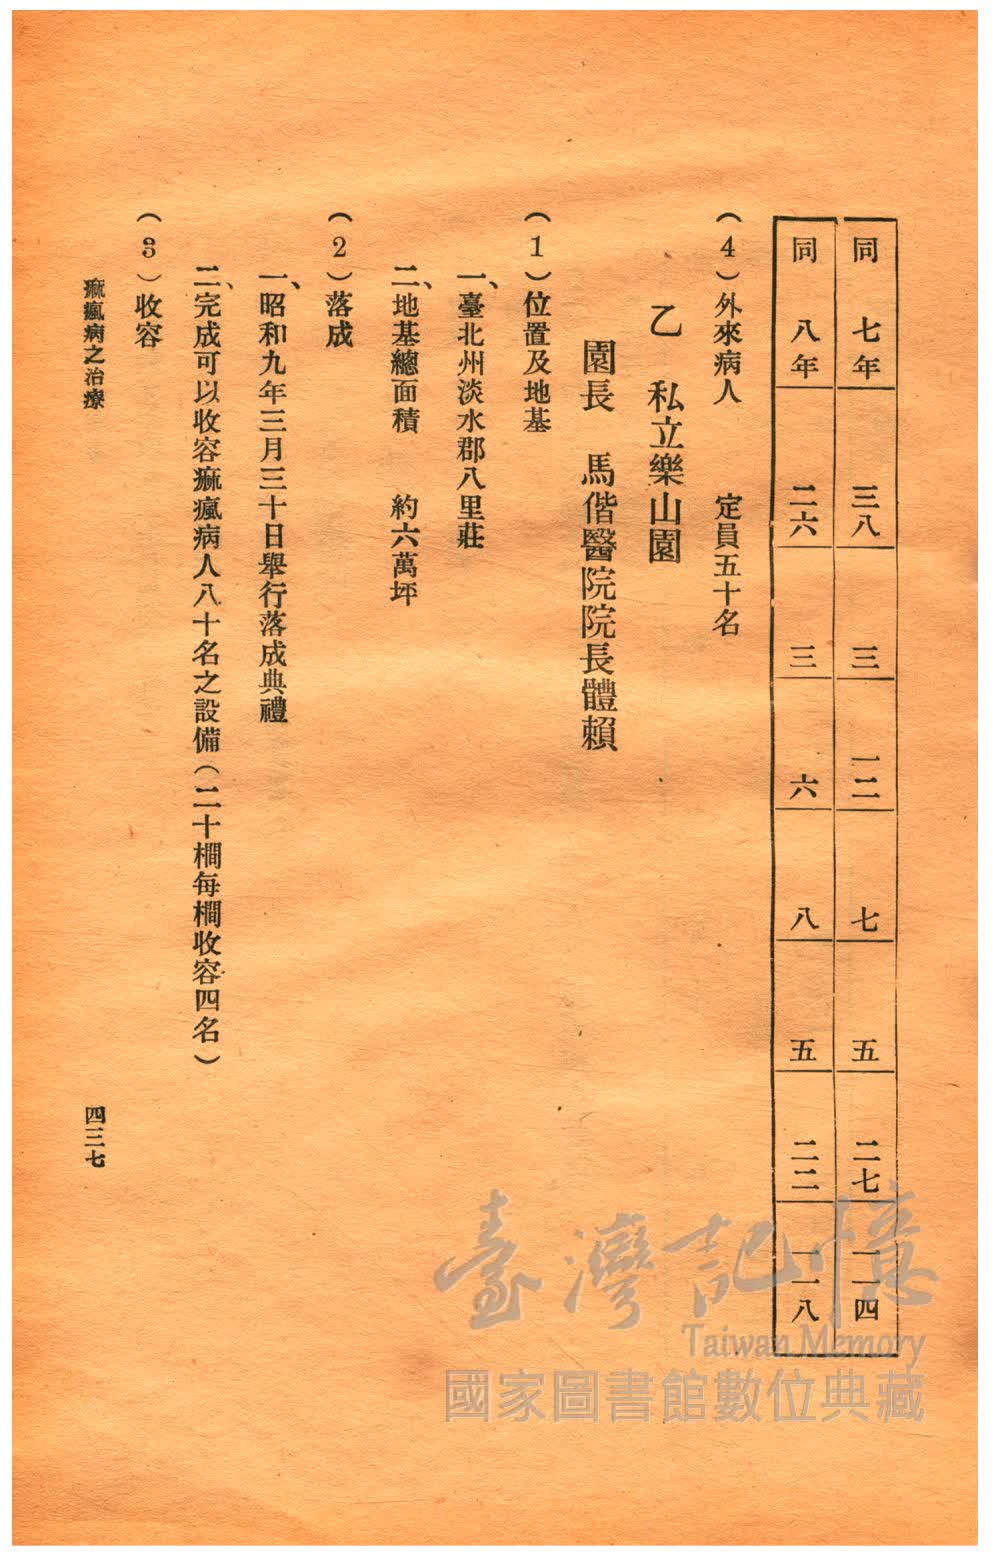 同 七年 三八 三 一二 七 五 二七 一一四
同 八年 二六 三 六 八 五 二二 一一八
(4)外來病人 定員五十名
乙 私立樂山園
園長 馬偕醫院院長戴賴
(1)位置及地基
一、臺北州淡水郡八里莊
二、地基總面積 約六萬坪
(2)落成
一、昭和九年三月三十日舉行落成典禮
二、完成可以收容痲瘋病人八十名之設備(二十橺每橺收容四名)
(3)收容
痲瘋病之治療
四三七
臺灣記憶
Taiwan Memory
國家圖書館數位典藏